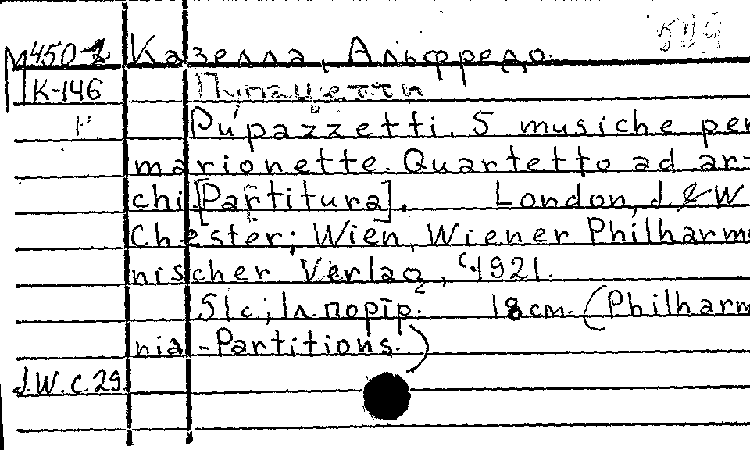 M450-2 Казелла, Альфредо.
К-146 Пупацетти
Pupazzetti. 5 musiche per
marionette. Quartetto ad ar-
chi [Partitura]. London, J. & W
Chester; Wien, Wiener Philharmo
nischer Verlag, c. 1921.
51c; 1л. портр. 18cm. (Philharmo
nia-Partitions.)
J.W.C. 29.